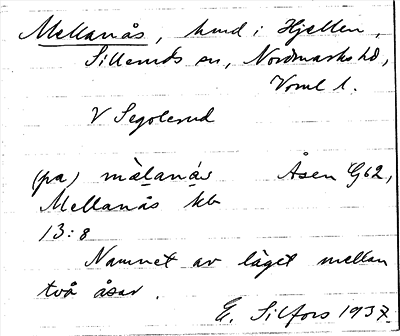 Mellanås, hmd i Hjellen,
Silleruds sn, Nordmarks hd,
Vrml l.
V Segolerud
(pa) mèlanás Åsen G62,
Mellanås kb
13:8
Namnet av läget mellan
två åsar.
E. Silfors 1937.